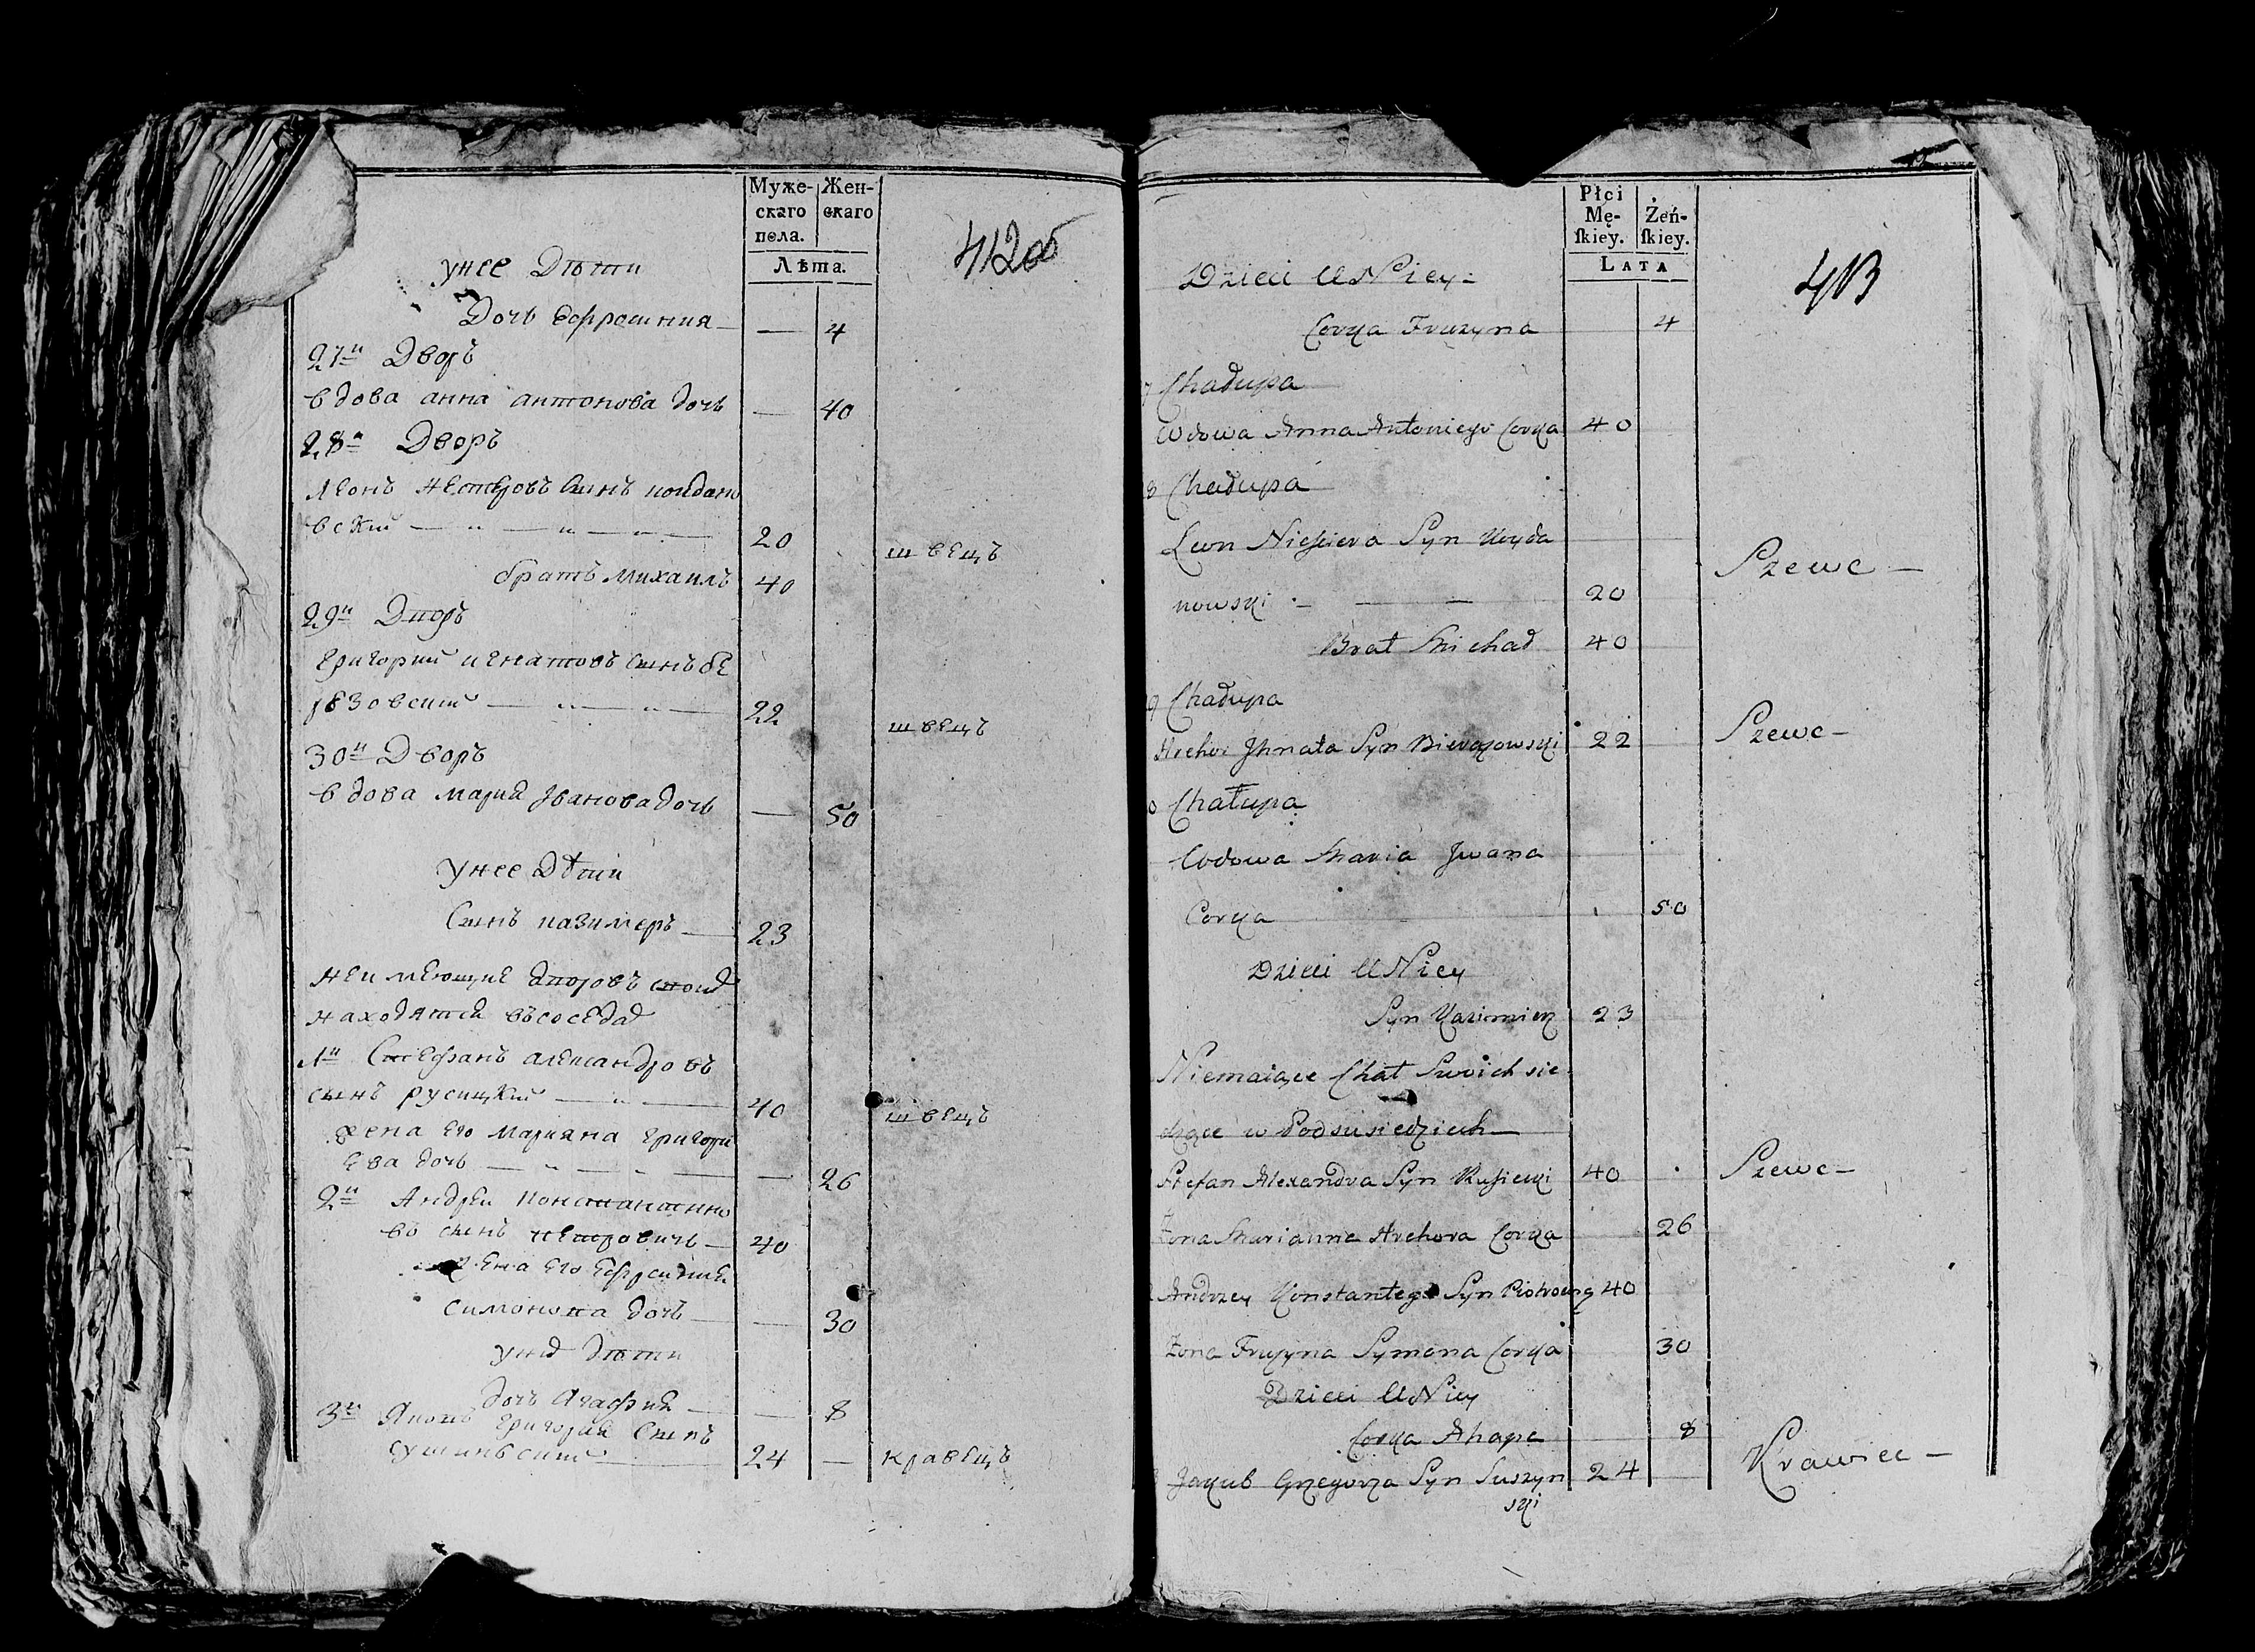 Муже-
скаго
пола.
Жен-
скаго
Лѣта.
412об
унее Дѣти
Дочь Ефросиния — — 4
27й Дворъ
вдова анна антонова дочь — 40
28й Дворъ
леонъ Нестеровъ Синъ коидано
вский — „ — „ — „ — 20 швецъ
братъ михаилъ 40
29й Дворъ
григорий игнатовъ синъ бе
резовский — „ — „ — 22 швецъ
30й Дворъ
вдова мария Ивановадочь — 50
унее Дѣти
Синъ казимеръ — 23
Неимеющие дворовъ своих
находятся въсоседах
1й Стефанъ александровъ
синъ русицкий — „ — 40 швецъ
жена его Марияна григори
ева дочь — „ — „ — 26
2й Андреи константино
въ синъ петровичъ — 40
жена его Ефросиния
симонова дочь — — 30
уних дѣти
дочь Агафия — — 8
3й Яковъ григория Синъ
сушинский — 24 — кравецъ
Płci
Mę-
ſkiey.
Żeń-
ſkiey.
LATA
413
Dzieci U Niey -
Corka Fruzyna 4
7 Chałupa
Wdowa Anna Antoniego Corka 40
8 Chałupa
Leon Niesciera Syn Koyda
nowski - — — 20 Szewc —
Brat Michał 40
9 Chałupa
Hrehor Ihnata Syn Bierezowski 22 Szewc —
0 Chałupa
Wdowa Maria Jwana
Corka 50
Dzieci U Niey
Syn Kazimierz 23
Niemaiące Chat Swoich sie
dzące w Podsusiedziech —
Stefan Alexandra Syn Rusicki 40 Szewc —
Żona Marianna Hrehora Corka 26
Andrzey Konstantego Syn Piotrowicz 40
Żona Fruzyna Symona Corka 30
Dzieci U Niey
Corka Ahapa 8
Jakub Grzegorza Syn Suszyn 24 Krawiec —
ski